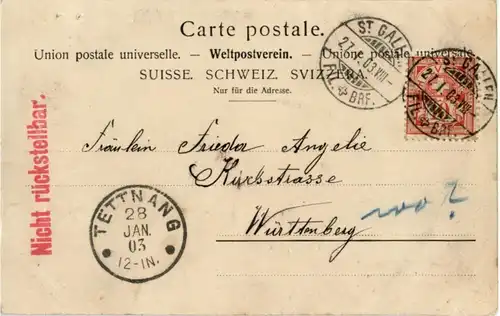 Carte postale.
Union postale universelle. – Weltpostverein. – Unione postale universale.
SUISSE. SCHWEIZ. SVIZZERA.
Nur für die Adresse.
ST. GALLEN
27. I. 03. VIII–
FIL. BRF.
ST. GALLEN
27. I. 03. VIII–
FIL. BRF.
Nicht rückstellbar.
Fräulein Frieda Angelie
Kirchstrasse
Württenberg
wo?
TETTNANG
28
JAN.
03
12-IN.